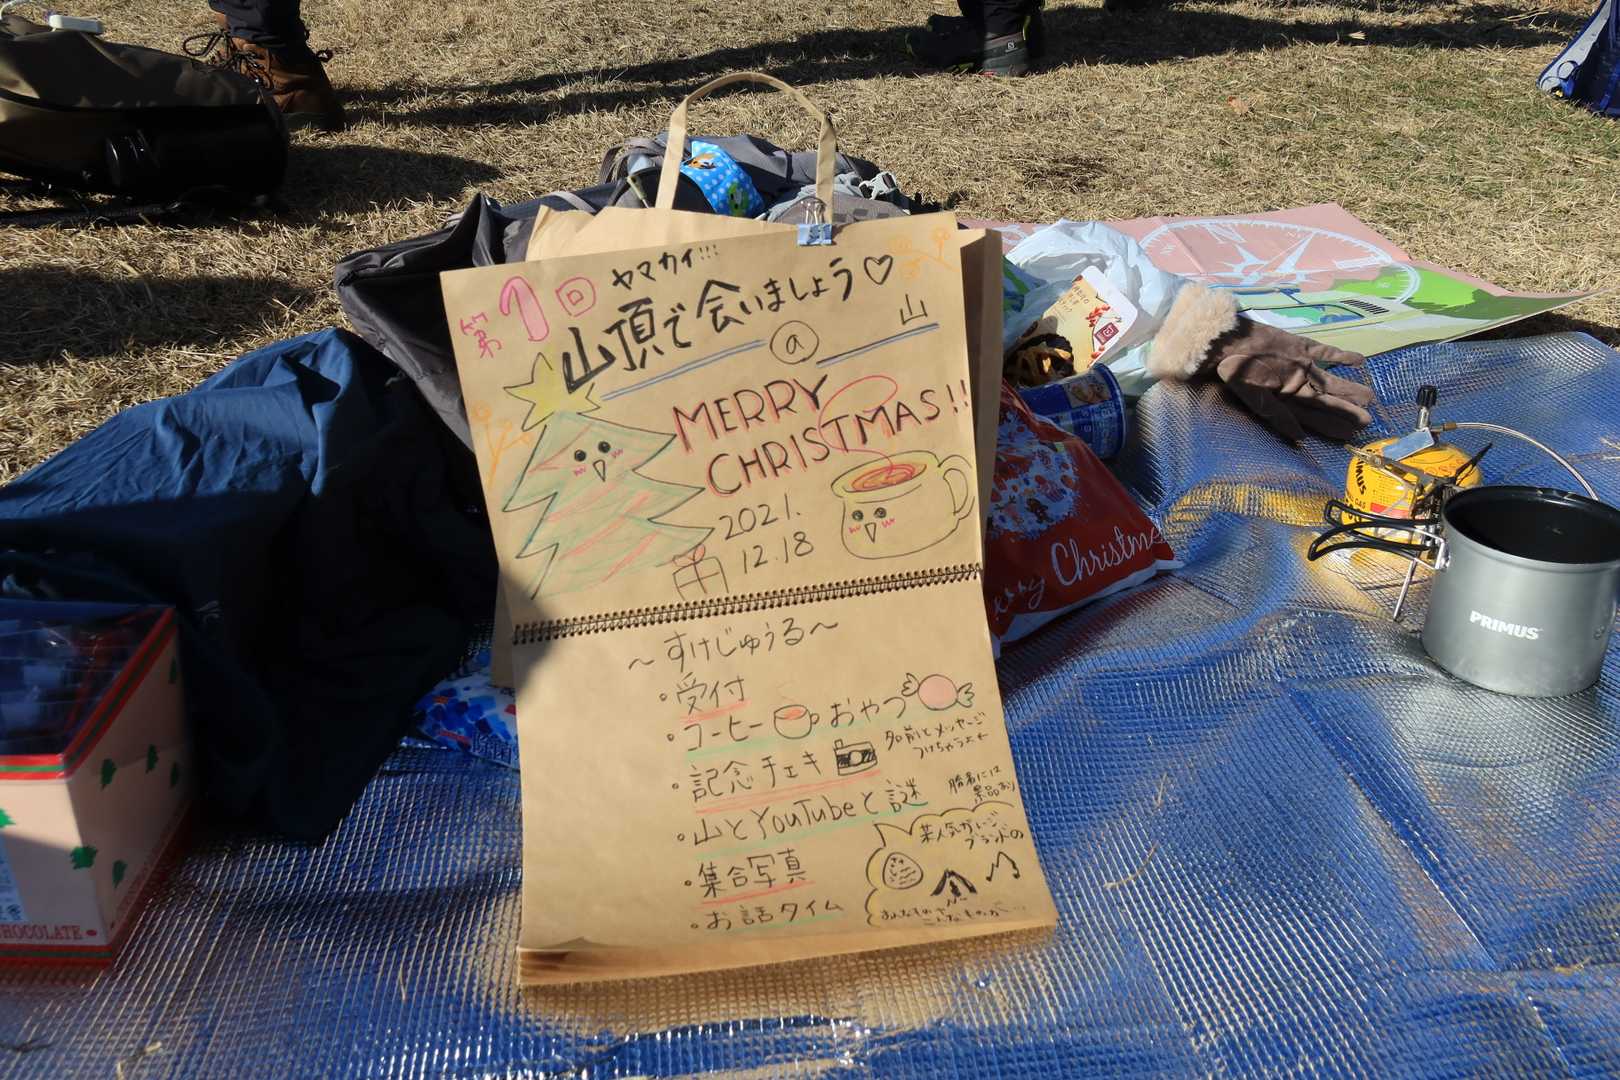 第1回
ヤマカイ!!!
山頂で会いましょう♡
@ 山
MERRY
CHRISTMAS!!
2021.
12.18
～すけじゅうる～
・受付
・コーヒー おやつ
名前とメッセージ
つけちゃうよ←
・記念チェキ
勝者には
景品あり
・山とYouTubeと謎
某人気ガレージ
ブランドの
・集合写真
・お話タイム
Merry Christmas
PRIMUS
PRIMUS
CHOCOLATE